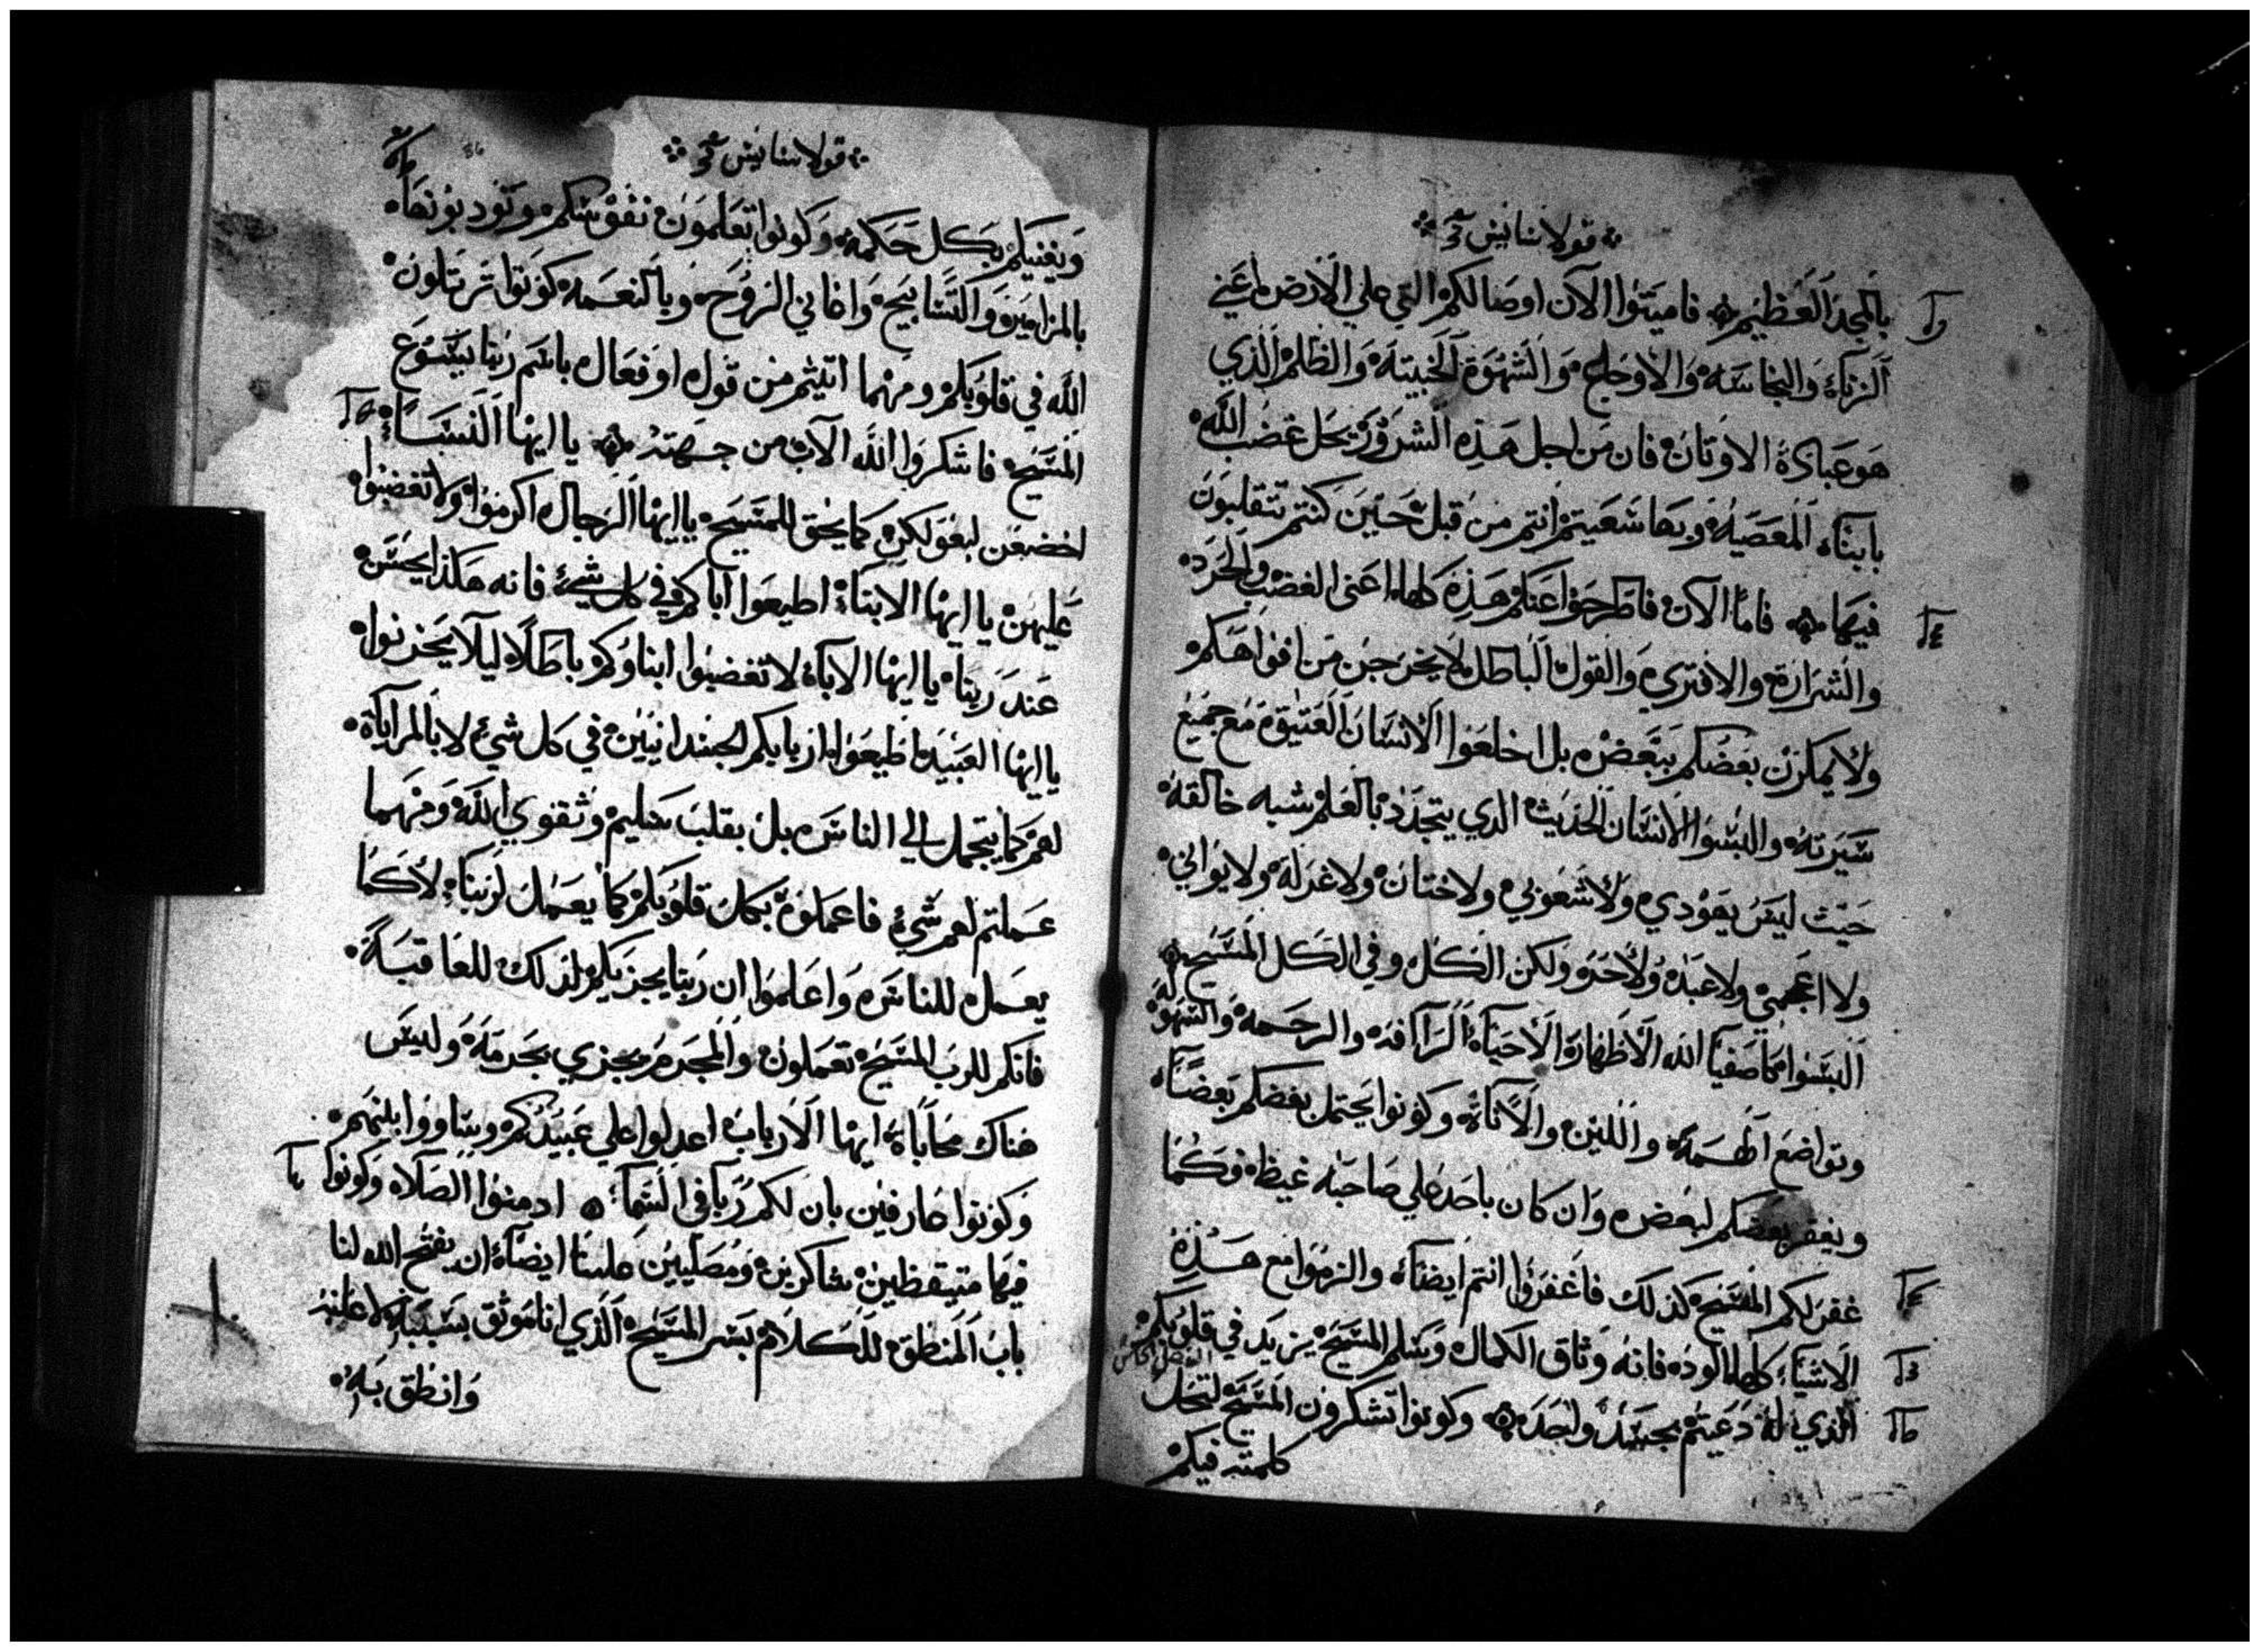 قولاسايس
بالمجد العظيم فاميتوا الآن اوصالكم التي علي الارض اعني
الزناء والنجاسه والاوجاع والشهوة الخبيثة والظلم الذي
هو عبادة الاوثان فان من اجل هذه الشرور يحل غضب الله
بابناء المعصيه وبها سعيتم انتم من قبل حين كنتم تتقلبون
فيها فاما الآن فاطرحوا عنكم هذه كلها اعني الغضب والحرد
والشرارة والافتري والقول الباطل لا يخرجن من افواهكم
ولا يمكرن بعضكم ببعض بل اخلعوا الانسان العتيق مع جميع
سيرته والبسوا الانسان الحديث الدي يتجدد بالعلم شبه خالقه
حيث ليس يهودي ولا شعوبي ولا ختان ولا غرلة ولا يواني
ولا اعجمي ولا عبد ولا حر ولكن الكل وفي الكل المسيح
البسوا كاصفيا الله الاطهار الاحباء الرأافه والرحمه والسهولة
وتواضع الهمه واللين والاناة وكونوا يحتمل بعضكم بعضا
ويغفر بعضكم لبعض وان كان باحد علي صاحبه غيظ فكما
غفر لكم المسيح كذلك فاغفروا انتم ايضا والزموا مع هذه
الاشياء كلها الود فانه وثاق الكمال وسلم المسيح يزيد في قلوبكم
الذي له دعيتم بجسد واحد وكونوا تشكرون المسيح لتحل
كلمته فيكم
قولاسايس
ويغنيكم بكل حكمه وكونوا تعلمون نفوسكم وتودبونها
بالمزامير والتسابيح واغاني الروح وبالنعمه كونوا ترتلون
الله في قلوبكم ومهما اتيتم من قول او فعال باسم ربنا يسوع
المسيح فاشكروا الله الآب من جهته يا ايها النساء
اخضعن لبعولكن كما يحق للمسيح يا ايها الرجال اكرموا ولا تغضبوا
عليهن يا ايها الابناء اطيعوا اباكم في كل شيء فانه هكذا يحسن
عند ربنا يا ايها الآباء لا تغضبوا ابناوكم باطلا ليلا يحزنوا
يا ايها العبيد اطيعوا اربابكم الجسدانيين في كل شيء لا بالمراياة
لهم كما يتجمل الي الناس بل بقلب سليم وتقوي الله ومهما
عملتم لهم شيء فاعملوه بكل قلوبكم كما يعمل لربنا لا كما
يعمل للناس واعلموا ان ربنا يجزيكم لذلك للعاقبة
فانكم للرب المسيح تعملون والمجرم يجزي بجرمه وليس
هناك محاباة ايها الارباب اعدلوا علي عبيدكم وساووا بينهم
وكونوا عارفين بان لكم ربا في السماء ادمنوا الصلاه وكونوا
فيها متيقظين شاكرين ومصليين علينا ايضا ان يفتح الله لنا
باب المنطق للكلام بسر المسيح الذي انا موثق بسببه لاعلنه
وانطق به